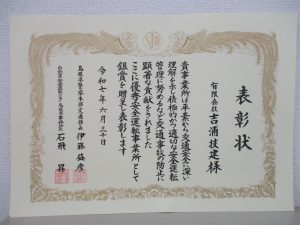 表彰状
有限会社 吉浦技建様
貴事業所は平素から交通安全に深い
理解を示し積極的かつ適切な安全運転
管理に努めるなど交通事故の防止に
顕著な貢献をされました
ここに優秀安全運転事業所として
銀賞を贈呈し表彰します
令和七年六月三十日
島根県警察本部交通部長 伊藤益彦
自動車安全運転センター島根県事務所長 石飛 昇